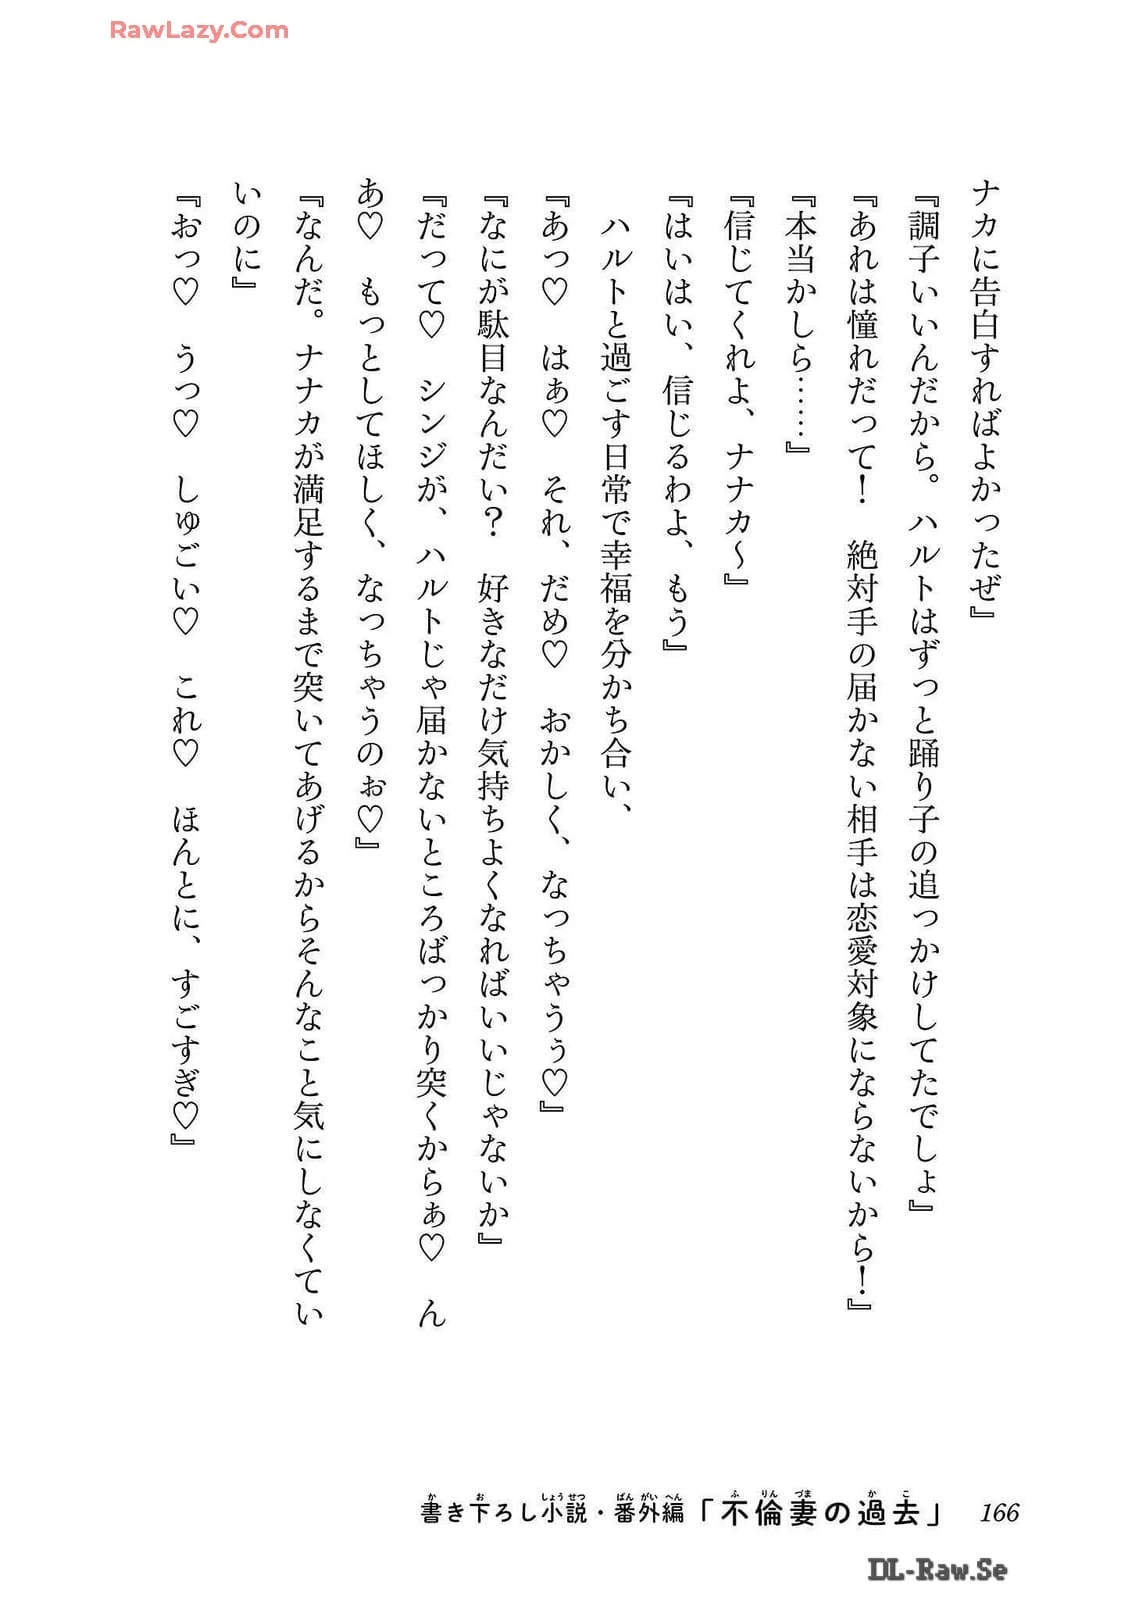 RawLazy.Com
ナカに告白すればよかったぜ』
『調子いいんだから。ハルトはずっと踊り子の追っかけしてたでしょ』
『あれは憧れだって！　絶対手の届かない相手は恋愛対象にならないから！』
『本当かしら……』
『信じてくれよ、ナナカ〜』
『はいはい、信じるわよ、もう』
　ハルトと過ごす日常で幸福を分かち合い、
『あっ♡　はぁ♡　それ、だめ♡　おかしく、なっちゃうぅ♡』
『なにが駄目なんだい？　好きなだけ気持ちよくなればいいじゃないか』
『だって♡　シンジが、ハルトじゃ届かないところばっかり突くからぁ♡　ん
あ♡　もっとしてほしく、なっちゃうのぉ♡』
『なんだ。ナナカが満足するまで突いてあげるからそんなこと気にしなくてい
いのに』
『おっ♡　うつ♡　しゅごい♡　これ♡　ほんとに、すごすぎ♡』
書き下ろし小説・番外編「不倫妻の過去」 166
DL-Raw.Se